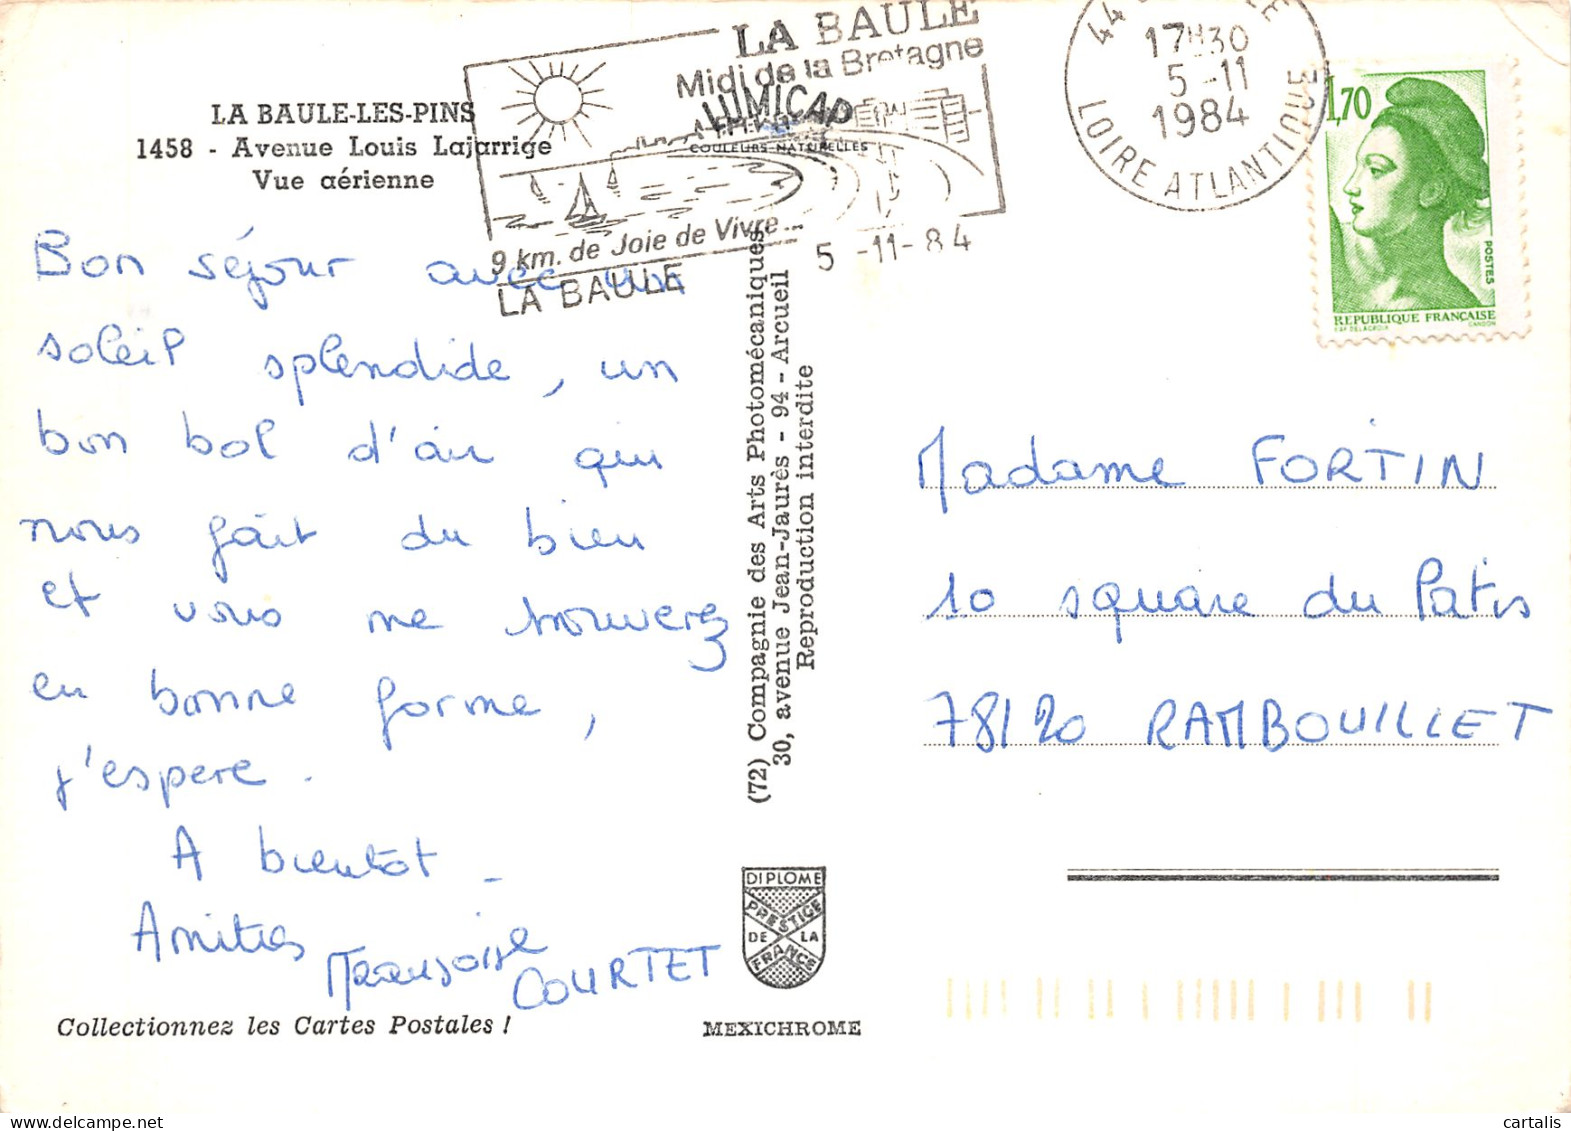 LA BAULE-LES-PINS
1458 - Avenue Louis Lajarrige
Vue aérienne
LA BAULE
Midi de la Bretagne
LUMICAP
COULEURS NATURELLES
9 km. de Joie de Vivre...
LA BAULE
5 -11- 84
44
17H30
5 -11
1984
LOIRE ATLANTIQUE
1,70
POSTES
REPUBLIQUE FRANÇAISE
D'AP DELACROIX
GANDON
Bon séjour avec un
soleil splendide, un
bon bol d'air qui
nous fait du bien
et vous me trouverez
en bonne forme,
j'espere.
A bientot -
Amities
COURTET
(72) Compagnie des Arts Photomécaniques
30, avenue Jean-Jaurès - 94 - Arcueil
Reproduction interdite
Madame FORTIN
10 square du Patis
78120 RAMBOUILLET
DIPLOME
PRESTIGE
DE LA
FRANCE
Collectionnez les Cartes Postales !
MEXICHROME
cartalis